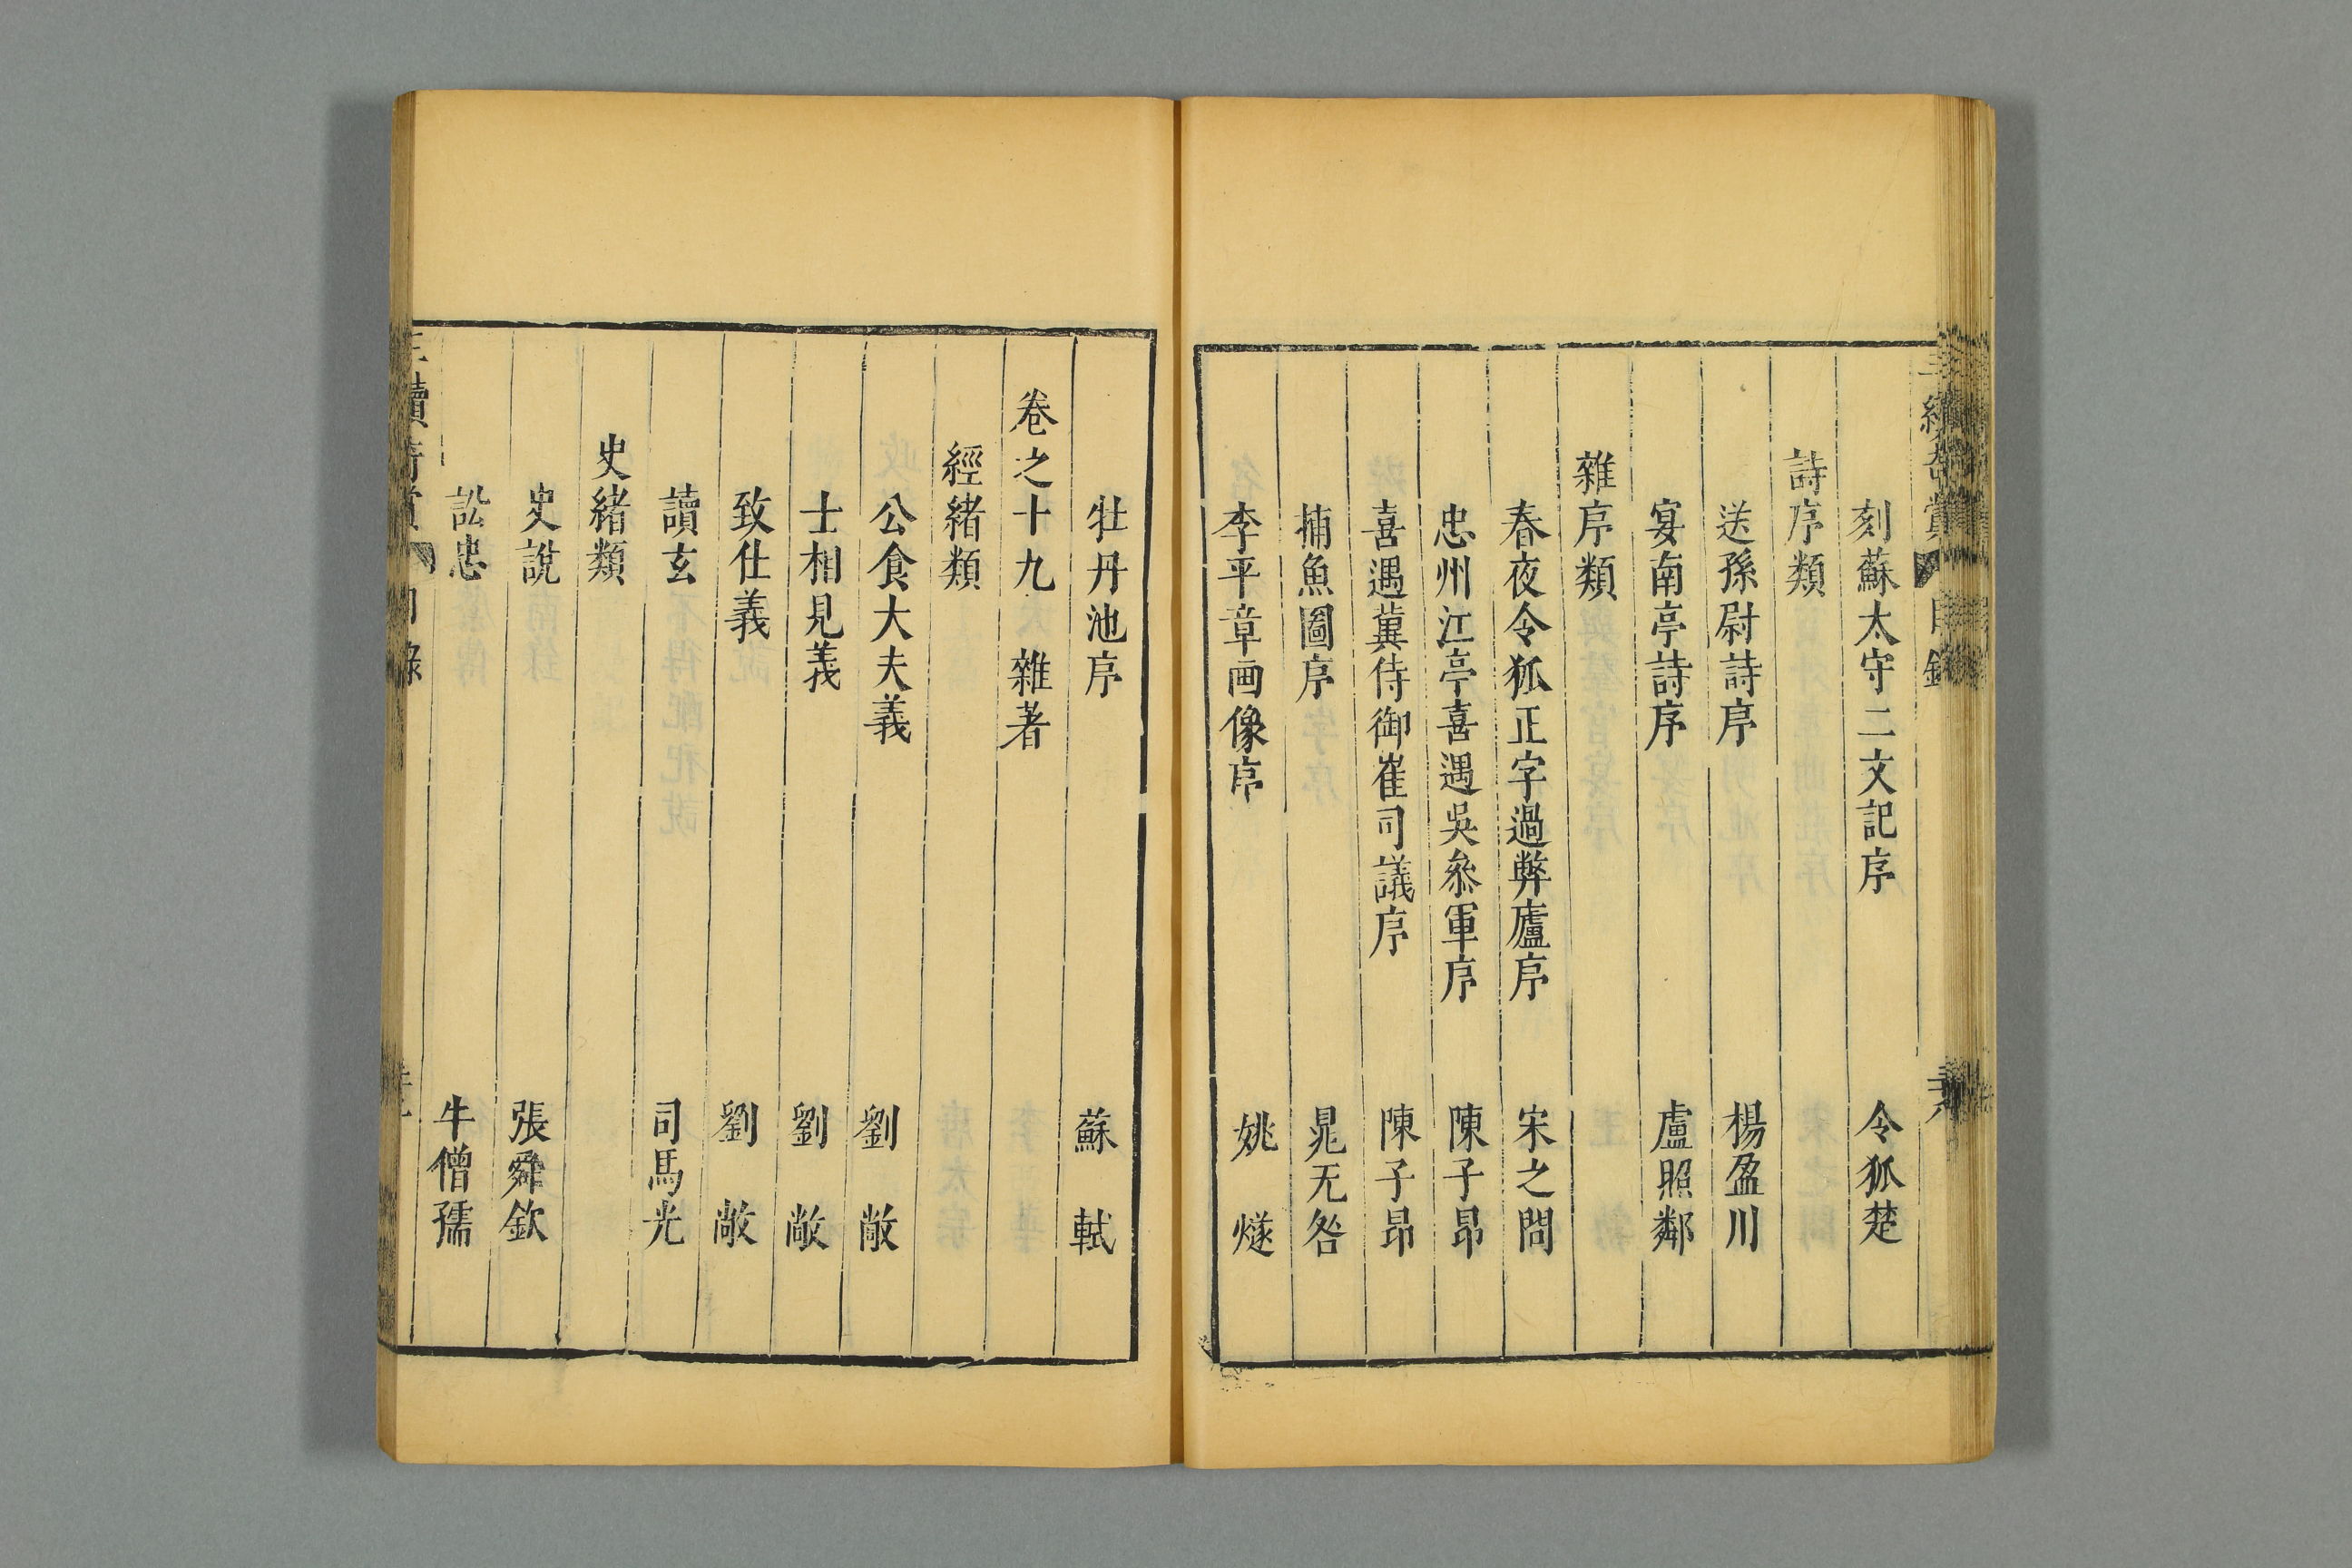 刻蘇太守二文記序 令狐楚
詩序類
送孫尉詩序 楊盈川
宴南亭詩序 盧照鄰
雜序類
春夜令狐正字過弊廬序 宋之問
忠州江亭喜遇吳叅軍序 陳子昂
喜遇冀侍御崔司議序 陳子昂
捕魚圖序 晁无咎
李平章画像序 姚燧
牡丹池序 蘇軾
卷之十九 雜著
經緒類
公食大夫義 劉敞
士相見義 劉敞
致仕義 劉敞
讀玄 司馬光
史緒類
史說 張舜欽
訟忠 牛僧孺